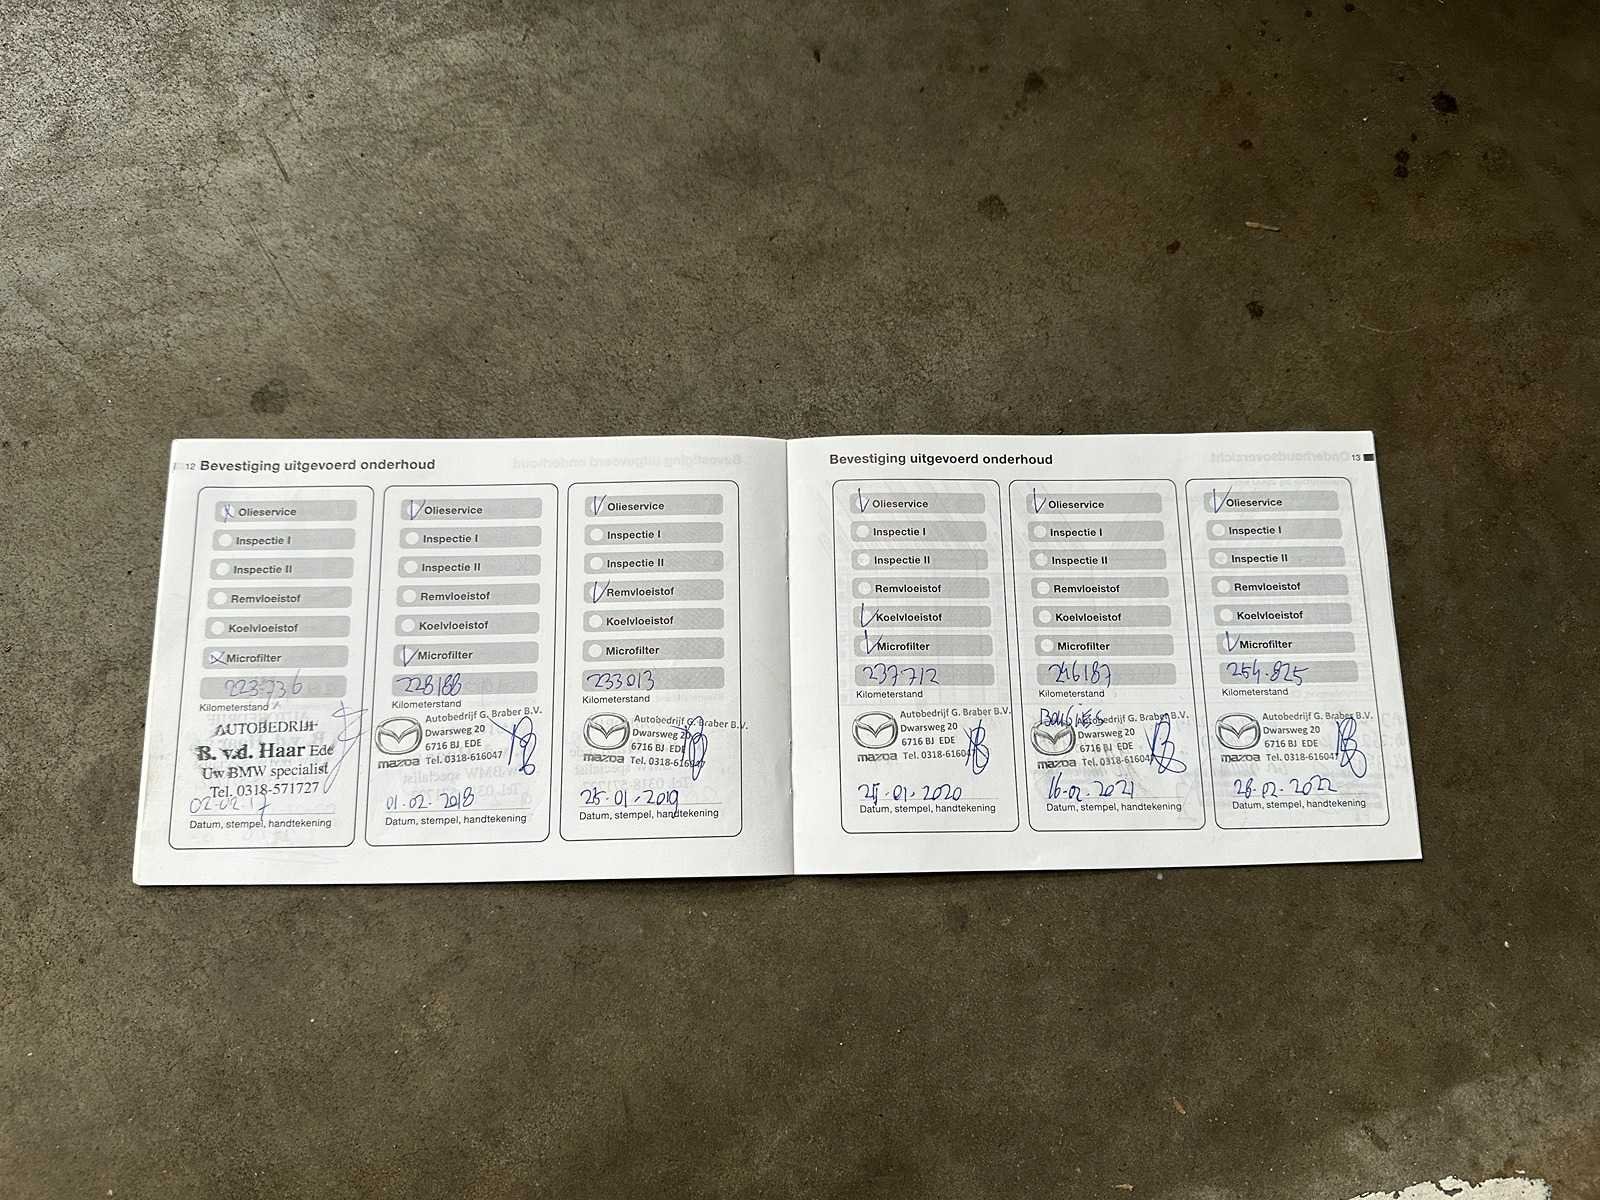 12 Bevestiging uitgevoerd onderhoud
Olieservice
Inspectie I
Inspectie II
Remvloeistof
Koelvloeistof
Microfilter
223.736
Kilometerstand
AUTOBEDRIJF
B. v.d. Haar Ede
Uw BMW specialist
Tel. 0318-571727
02-02-17
Datum, stempel, handtekening
Olieservice
Inspectie I
Inspectie II
Remvloeistof
Koelvloeistof
Microfilter
228188
Kilometerstand
Autobedrijf G. Braber B.V.
Dwarsweg 20
6716 BJ EDE
mazda Tel. 0318-616047
01-02-2018
Datum, stempel, handtekening
Olieservice
Inspectie I
Inspectie II
Remvloeistof
Koelvloeistof
Microfilter
233013
Kilometerstand
Autobedrijf G. Braber B.V.
Dwarsweg 20
6716 BJ EDE
mazda Tel. 0318-616047
25-01-2019
Datum, stempel, handtekening
Bevestiging uitgevoerd onderhoud 13
Olieservice
Inspectie I
Inspectie II
Remvloeistof
Koelvloeistof
Microfilter
237712
Kilometerstand
Autobedrijf G. Braber B.V.
Dwarsweg 20
6716 BJ EDE
mazda Tel. 0318-616047
01-2020
Datum, stempel, handtekening
Olieservice
Inspectie I
Inspectie II
Remvloeistof
Koelvloeistof
Microfilter
246187
Kilometerstand
Bougies
Autobedrijf G. Braber B.V.
Dwarsweg 20
6716 BJ EDE
mazda Tel. 0318-616047
16-02-2021
Datum, stempel, handtekening
Olieservice
Inspectie I
Inspectie II
Remvloeistof
Koelvloeistof
Microfilter
254.825
Kilometerstand
Autobedrijf G. Braber B.V.
Dwarsweg 20
6716 BJ EDE
mazda Tel. 0318-616047
28-02-2022
Datum, stempel, handtekening